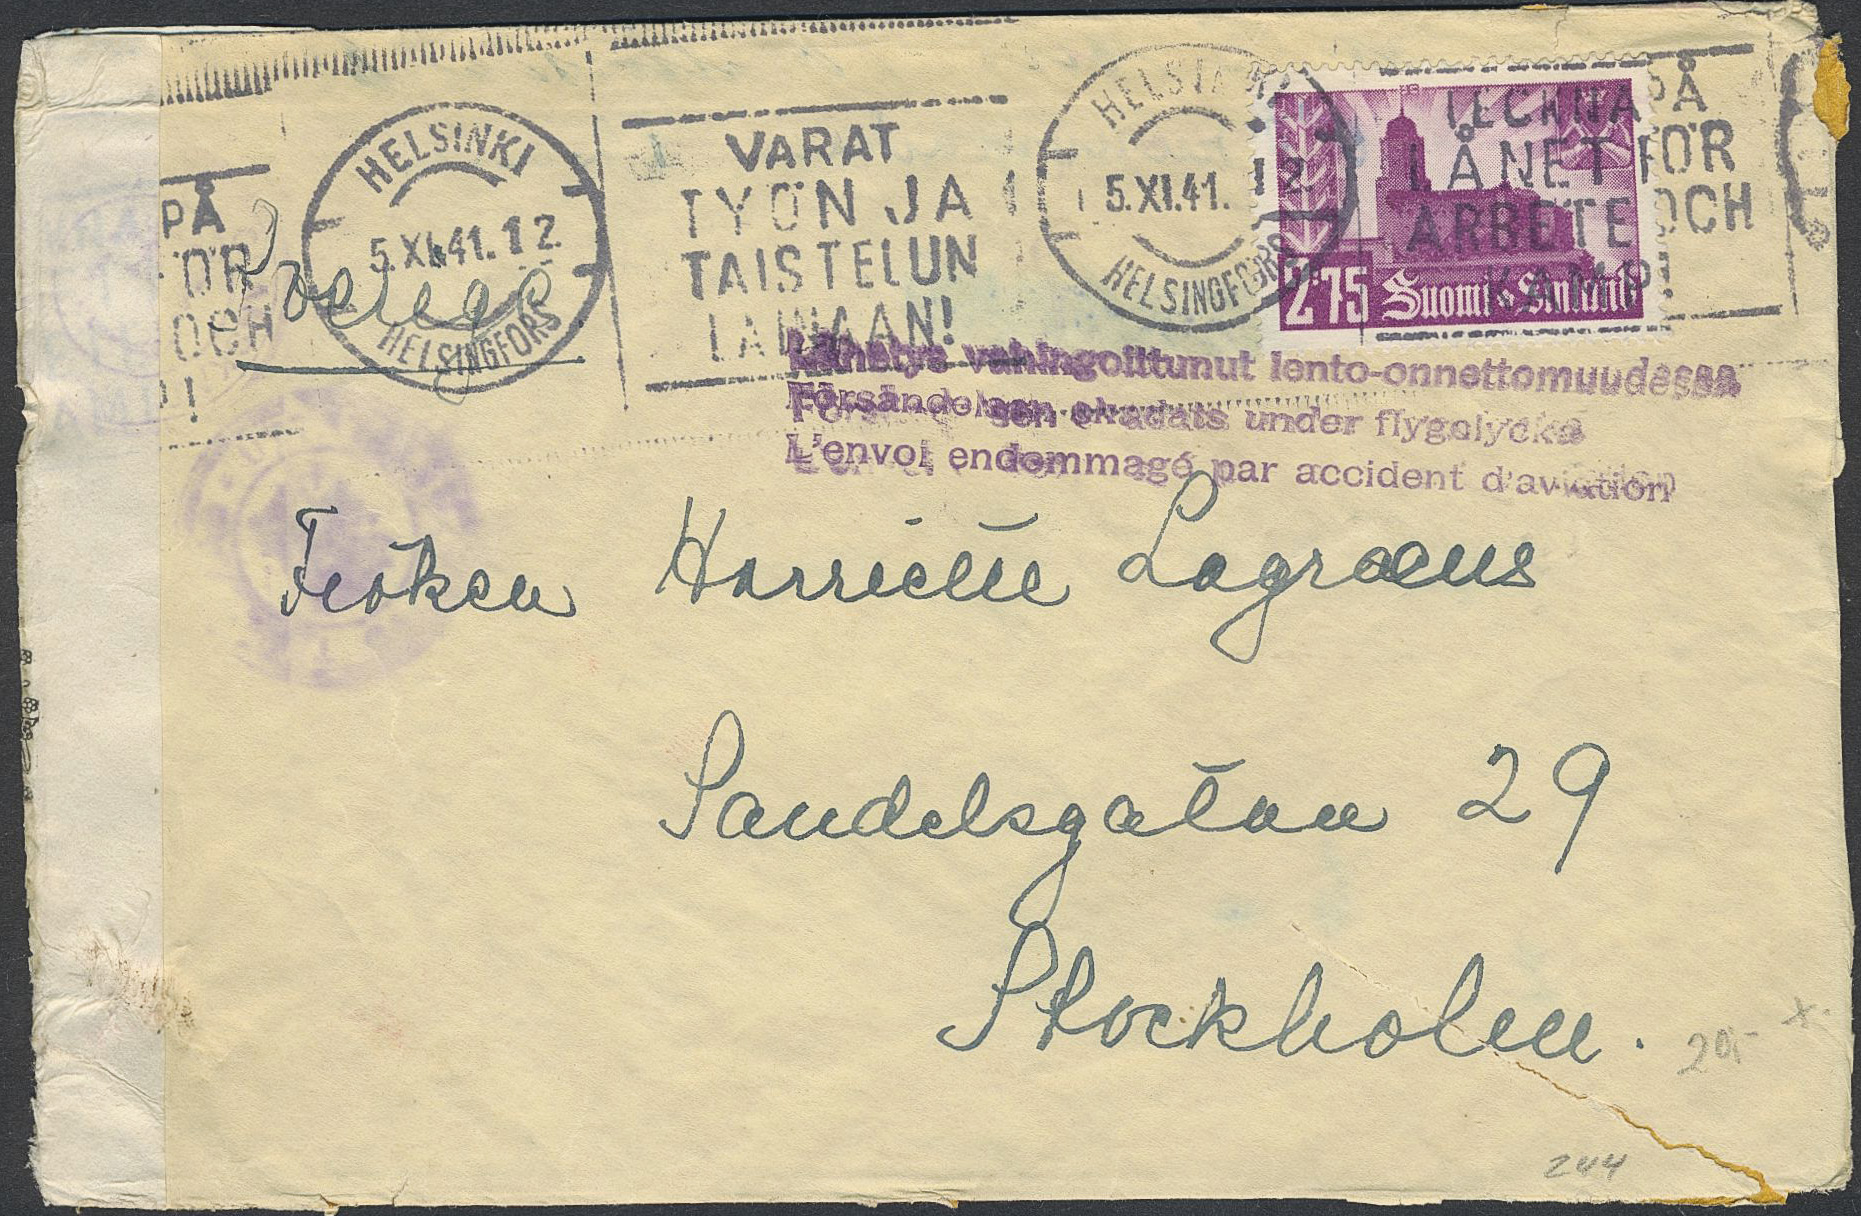 PÅ
FÖR
OCH
P!
HELSINKI
5.XI.41.12
HELSINGFORS
VARAT
TYÖN JA
TAISTELUN
LAINAAN!
HELSINKI
5.XI.41. 12
HELSINGFORS
TECKNA PÅ
LÅNET FÖR
ARBETE OCH
KAMP!
2.75 Suomi Finland
Sverige
Lähetys vahingoittunut lento-onnettomuudessa
Försändelsen skadats under flygolycka
L'envoi endommagé par accident d'aviation
Fröken Harriette Lagraeus
Sandelsgatan 29
Stockholm.
205- x.
244